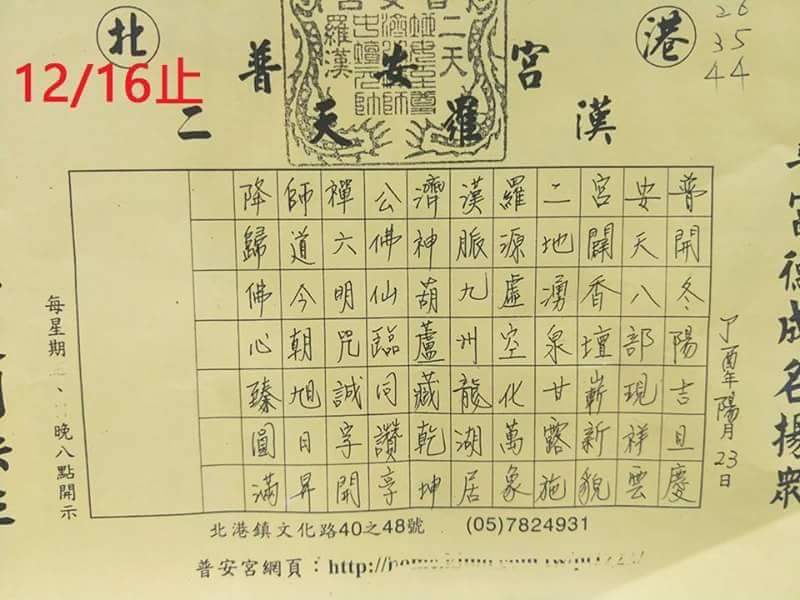 北港
普安宮
二天羅漢
12/16止
26
35
44
宮德成名揚眾
丁酉年陽月23日
普開冬陽吉旦慶
安天八部現祥雲
宮闢香壇嶄新貌
二地湧泉甘露施
羅源虛空化萬象
漢脈九州龍湖居
濟神葫蘆藏乾坤
公佛仙臨同讚享
禪六明咒誠字開
師道今朝旭日昇
降歸佛心臻圓滿
每星期二、晚八點開示
北港鎮文化路40之48號 (05)7824931
普安宮網頁：http://